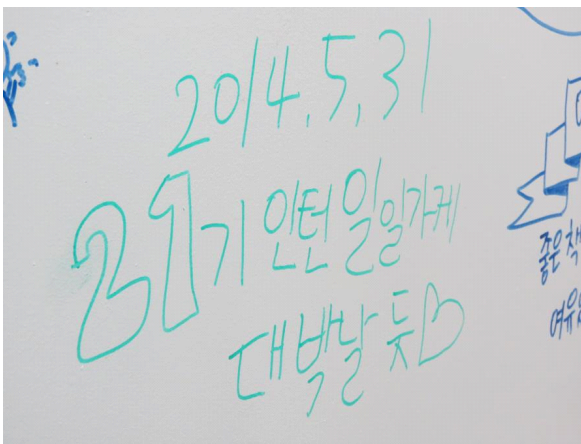 2014.5.31
21기 인턴 일일가게
대박날 듯
좋은 책
여유